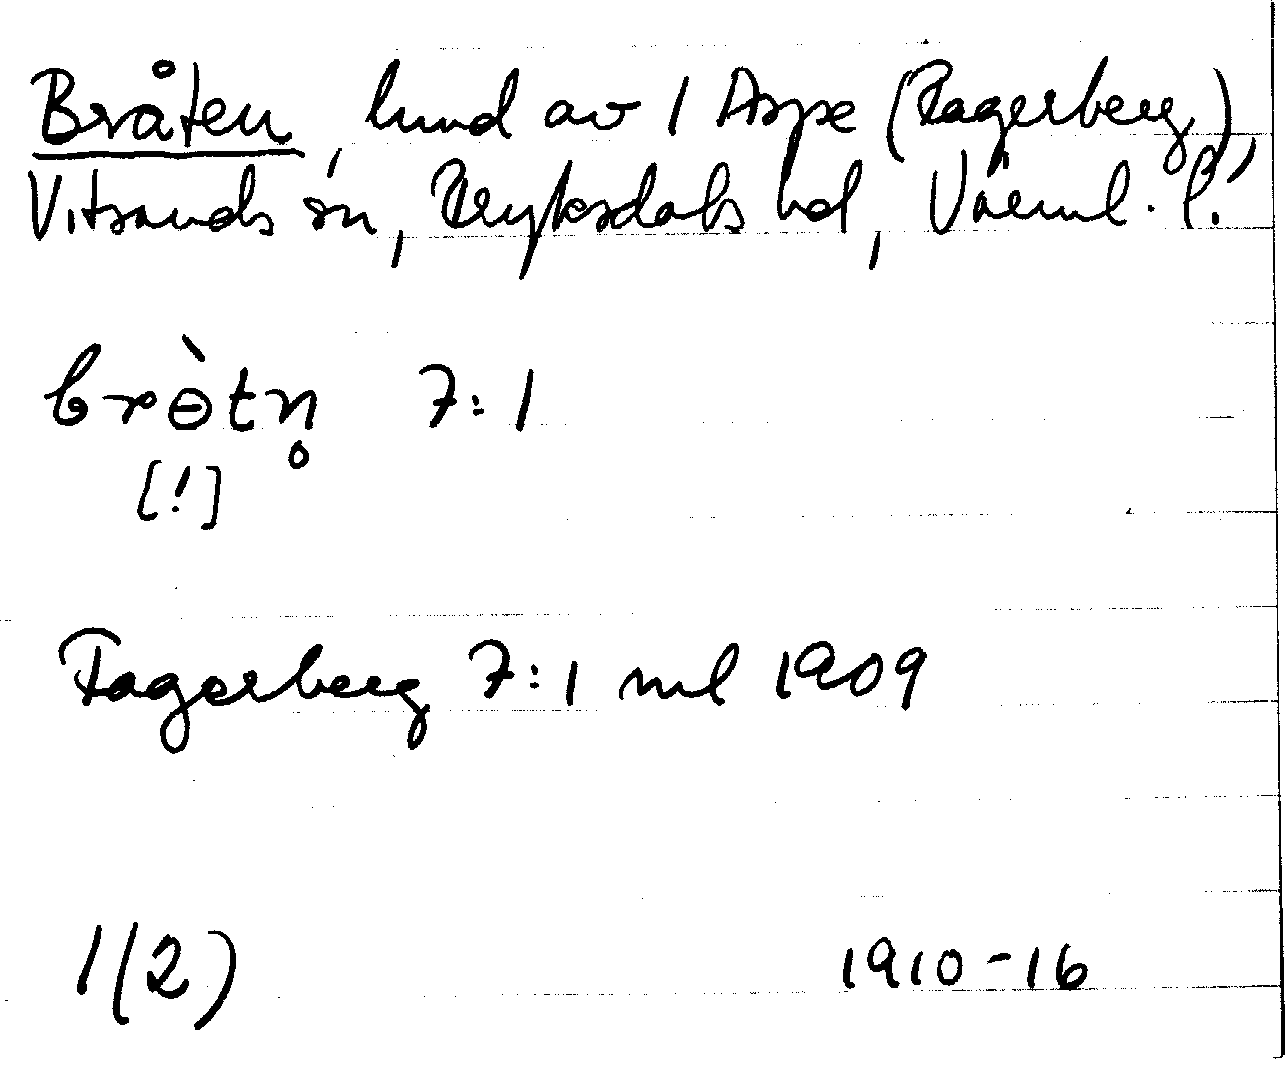 Bråten, lund av 1 Aspe (Fagerberg),
Vitsands sn, Fryksdals hd, Värml. l.
brɵ̀tn̥ 7:1
[!]
Fagerberg 7:1 ml 1909
1(2) 1910-16